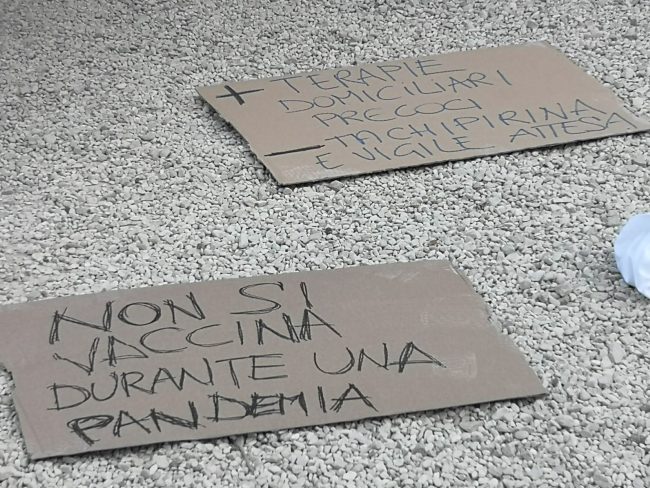 + TERAPIE
DOMICILIARI
PRECOCI
- TACHIPIRINA
E VIGILE ATTESA
NON SI
VACCINA
DURANTE UNA
PANDEMIA